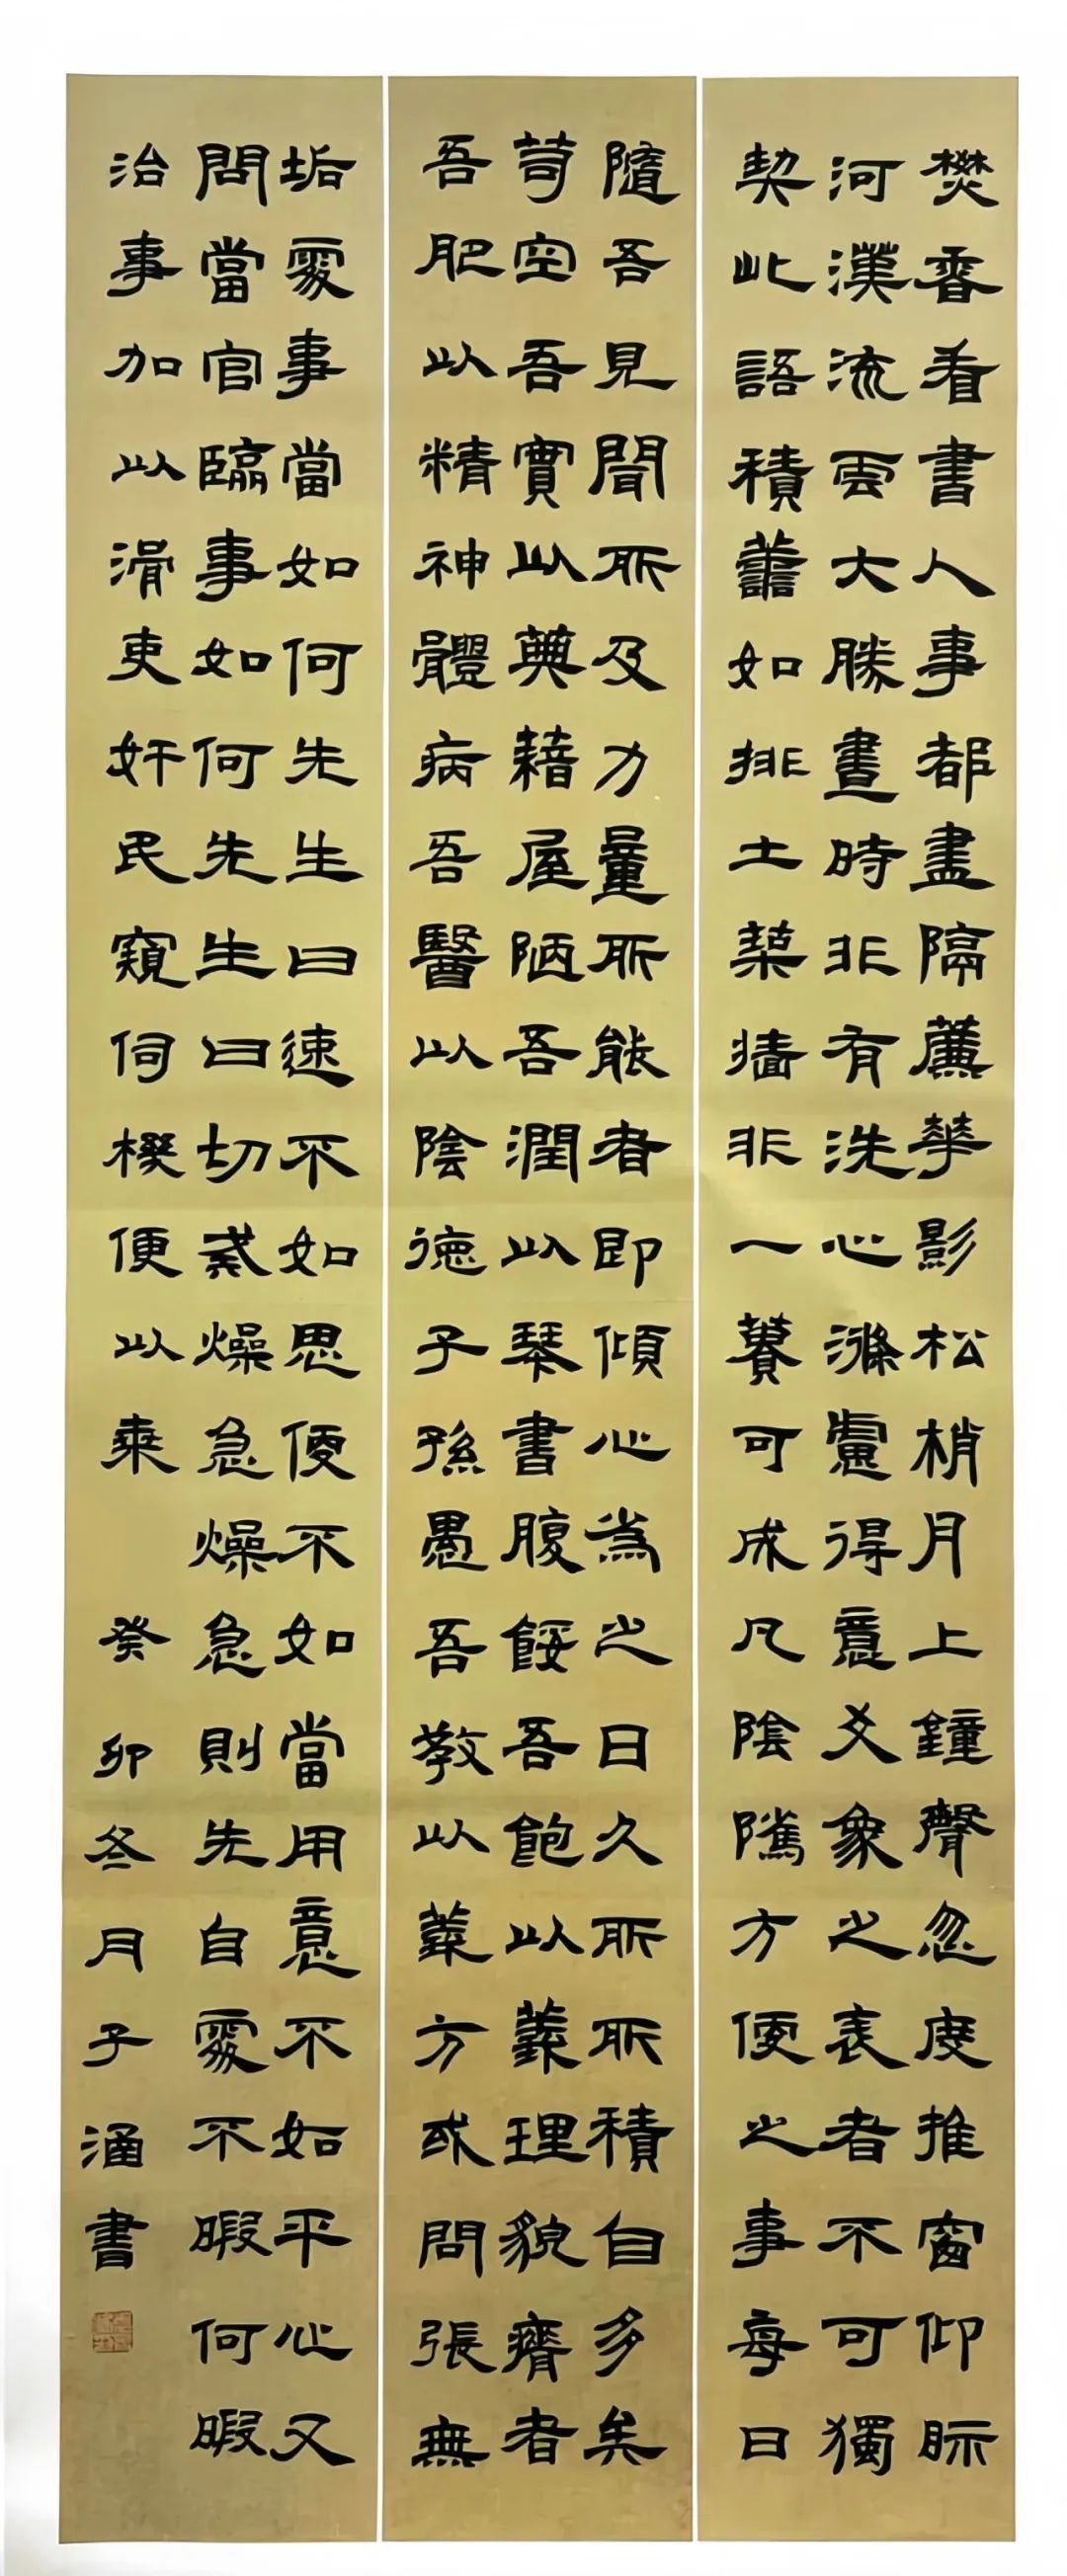 焚香看書人事都盡隔簾華影松梢月上鐘聲忽度推窗仰眎
河漢流雲大勝晝時非有洗心滌慮得意爻象之表者不可獨
契此語積善如排土築墻非一蕢可成凡陰騭方便之事每日
隨吾見聞所及力量所能者即傾心為之日久所所積自多矣
笥空吾實以典籍屋陋吾潤以琴書腹餒吾飽以義理貌瘠者
吾肥以精神體病吾醫以陰德子孫愚吾教以義方或問張無
垢處事當如何先生曰速不如思便不如當用意不如平心又
問當官臨事如何先生曰切戒燥急燥急則先自處不暇何暇
治事加以滑吏奸民窺伺機便以乘 癸卯冬月子涵書